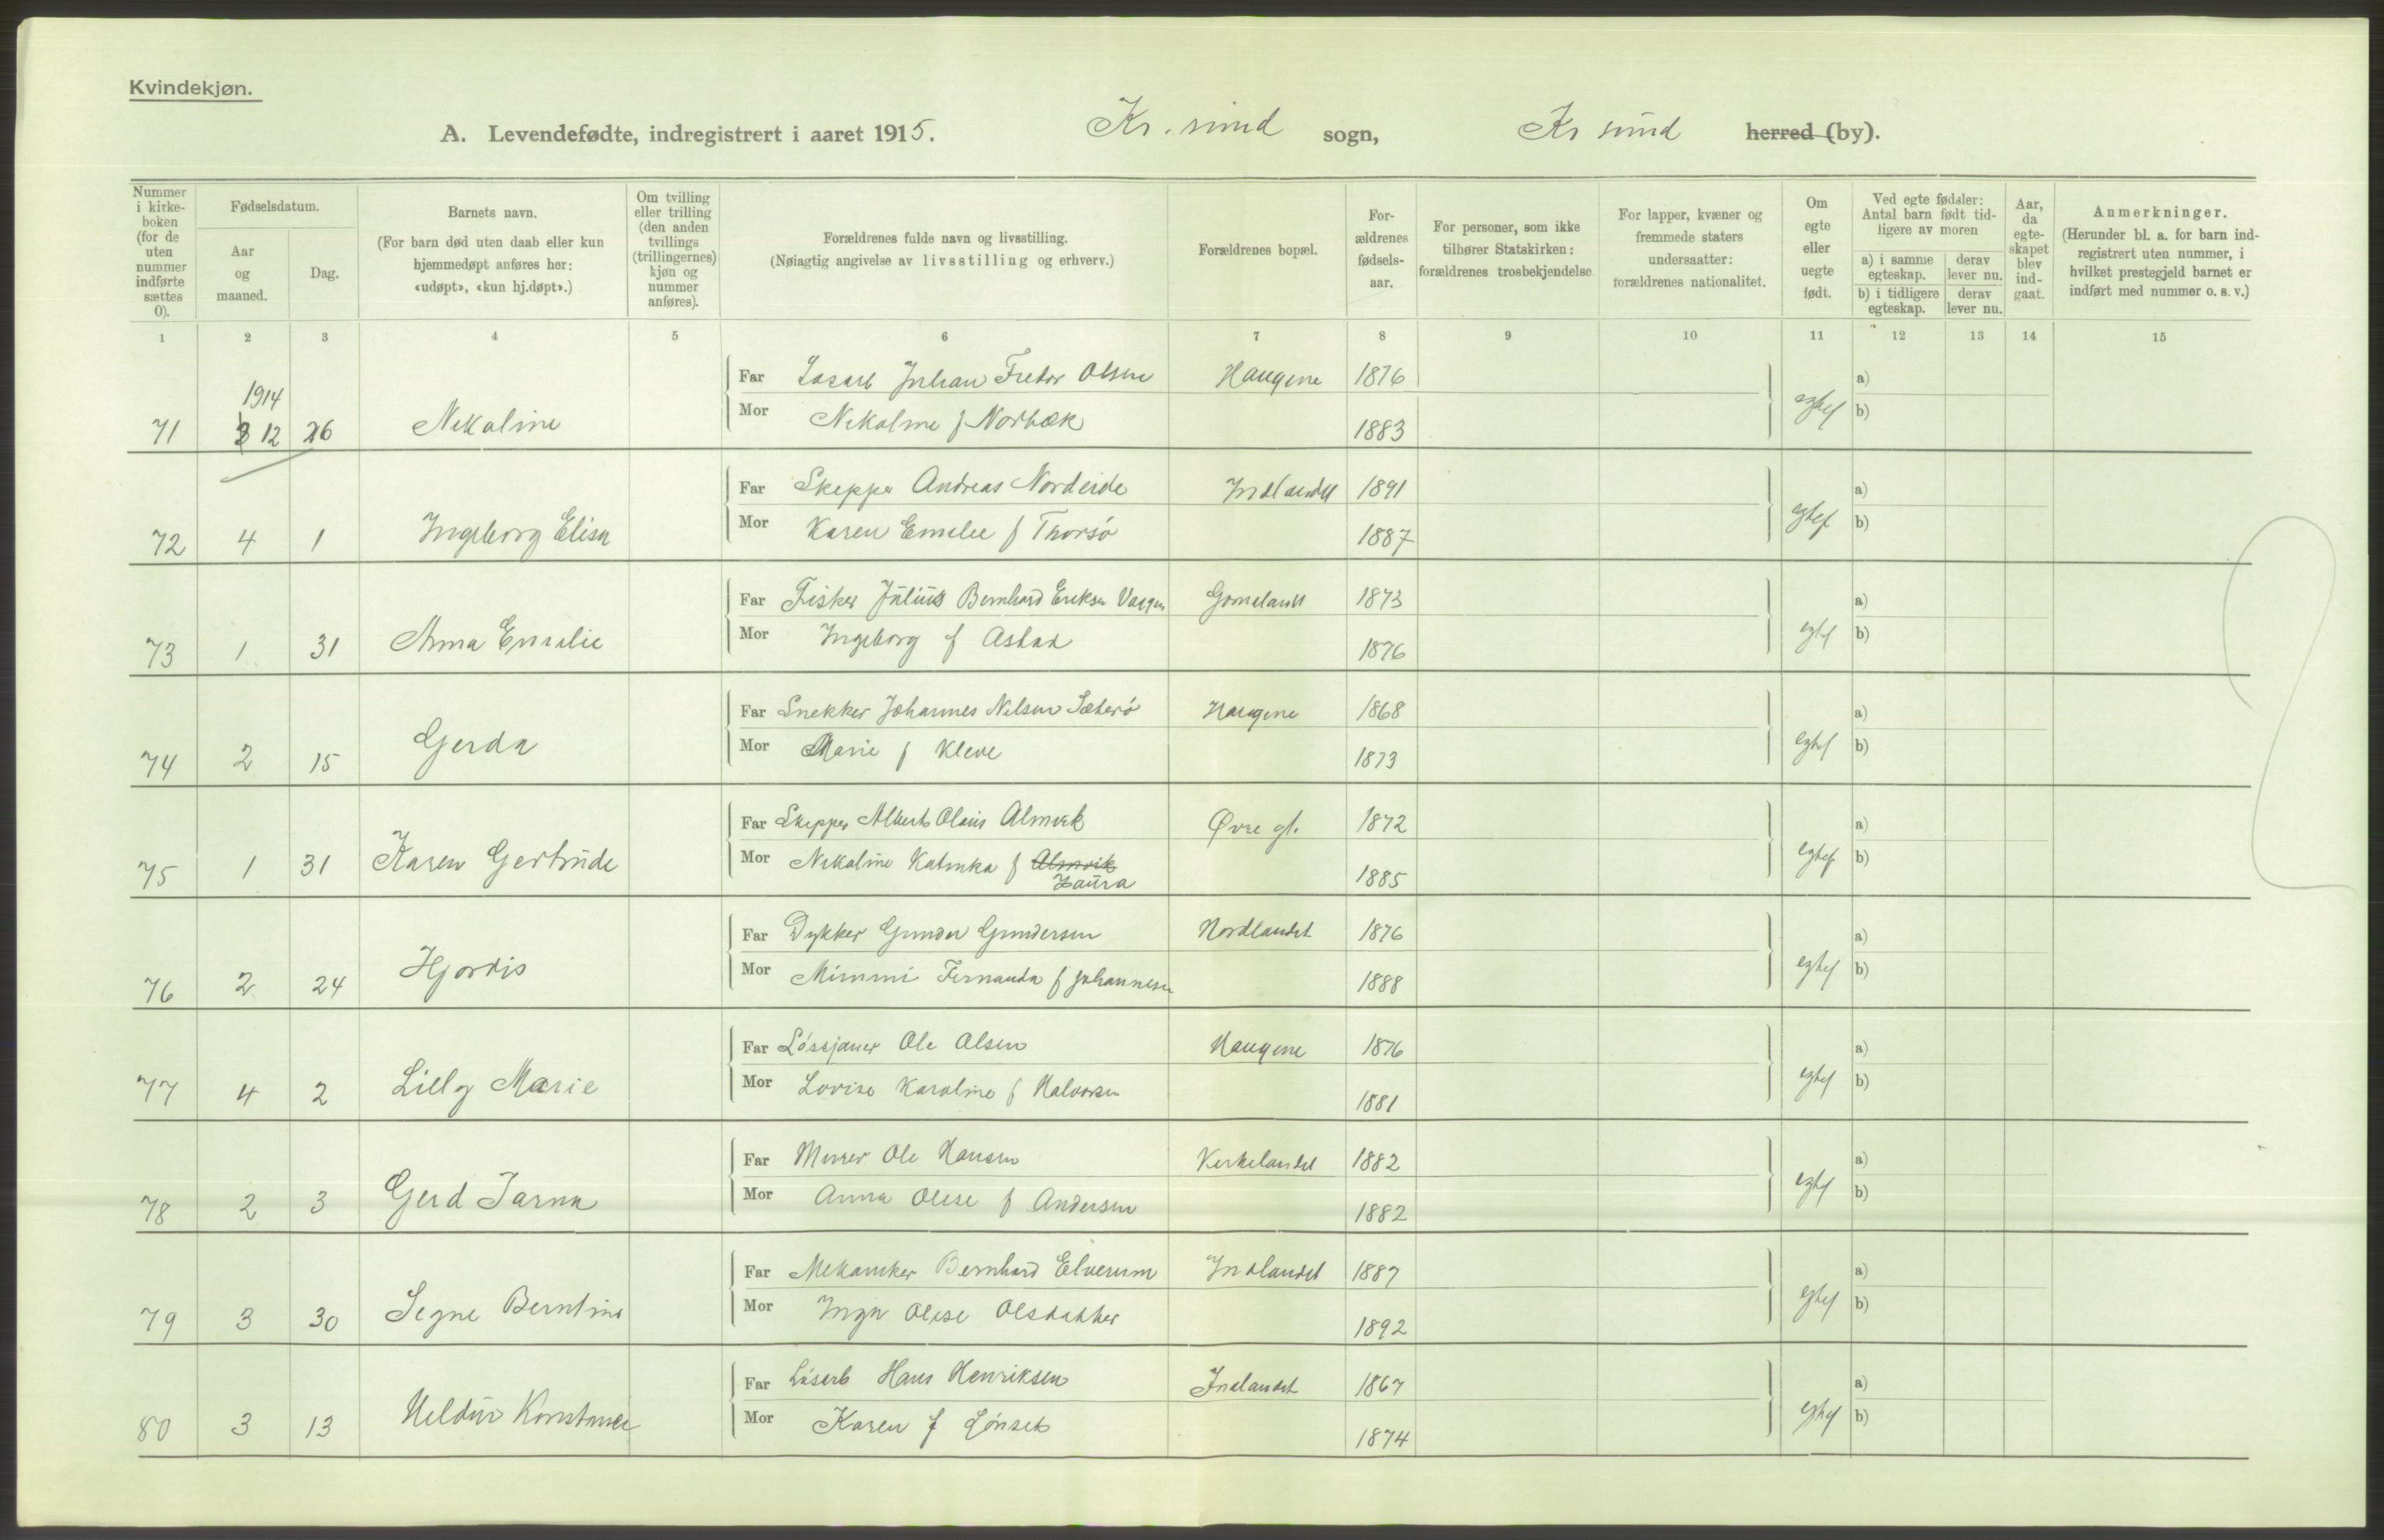 Kvindekjøn.
A. Levendefødte, indregistrert i aaret 1915. Kr. sund sogn, Kr sund herred (by).
Nummer i kirkeboken (for de uten nummer indførte sættes 0).
Fødselsdatum.
Aar og maaned.
Dag.
Barnets navn.
(For barn død uten daab eller kun hjemmedøpt anføres her: «udøpt», «kun hj.døpt».)
Om tvilling eller trilling (den anden tvillings (trillingernes) kjøn og nummer anføres).
Forældrenes fulde navn og livsstilling.
(Nøiagtig angivelse av livsstilling og erhverv.)
Forældrenes bopæl.
Forældrenes fødselsaar.
For personer, som ikke tilhører Statskirken: forældrenes trosbekjendelse
For lapper, kvæner og fremmede staters undersaatter: forældrenes nationalitet.
Om egte eller uegte født.
Ved egte fødsler: Antal barn født tidligere av moren
a) i samme egteskap.
derav lever nu.
b) i tidligere egteskap.
derav lever nu.
Aar, da egteskapet blev indgaat.
Anmerkninger.
(Herunder bl. a. for barn indregistrert uten nummer, i hvilket prestegjeld barnet er indført med nummer o. s. v.)
1 2 3 4 5 6 7 8 9 10 11 12 13 14 15
1914
Far Losarb Johan Fredor Olsen Haugene 1876 a)
71 12 26 Nikoline Mor Nikoline f Norbæk 1883 egtef b)
Far Skipper Andreas Nordeide Indlandet 1891 a)
72 4 1 Ingeborg Elisa Mor Karen Emelie f Thorsø 1887 egtef b)
Far Fisker Julius Bernhard Eriksen Gomelandt 1873 a)
73 1 31 Anna Emilie Mor Ingeborg f 1876 egtef b)
Far Snekker Johannes Nilsen Sæterø Haugene 1868 a)
74 2 15 Gerda Mor Marie f Kleve 1873 egtef b)
Far Skipper Albert Olaus Almvik Øvre gt. 1872 a)
75 1 31 Karen Gertrude Mor Nikoline Katinka f Almvik 1885 egtef b)
Laura
Far Dykker Gunder Gundersen Nordlandet 1876 a)
76 2 24 Hjordis Mor Mimmi Fernanda f Johannesen 1888 egtef b)
Far Løssjauer Ole Olsen Haugene 1876 a)
77 4 2 Lilly Marie Mor Lovise Karoline f Halvorsen 1881 egtef b)
Far Murer Ole Hansen Kirkelandet 1882 a)
78 2 3 Gerd Jarna Mor Anna Olise f Andersen 1882 egtef b)
Far Mekaniker Bernhard Elverum Indlandet 1887 a)
79 3 30 Signe Berntine Mor Inga Olise Olsdatter 1892 egtef b)
Far Løsarb Hans Henriksen Inlandet 1867 a)
80 3 13 Hildur Konstance Mor Karen f Lønset 1874 egtef b)